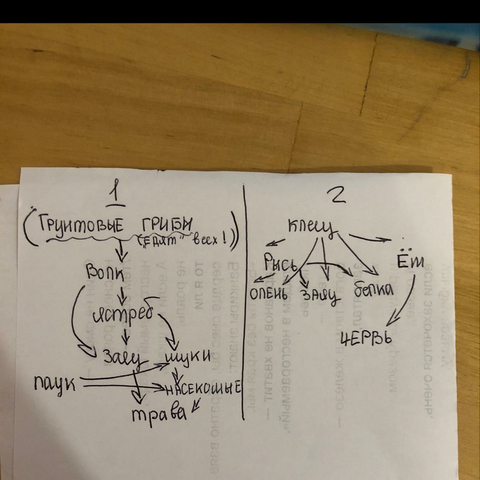 1
(Грунтовые грибы
"едят" всех!)
Волк
Ястреб
Заяц
жуки
паук
насекомые
трава
2
клещ
Рысь
Ёж
олень
заяц
белка
червь